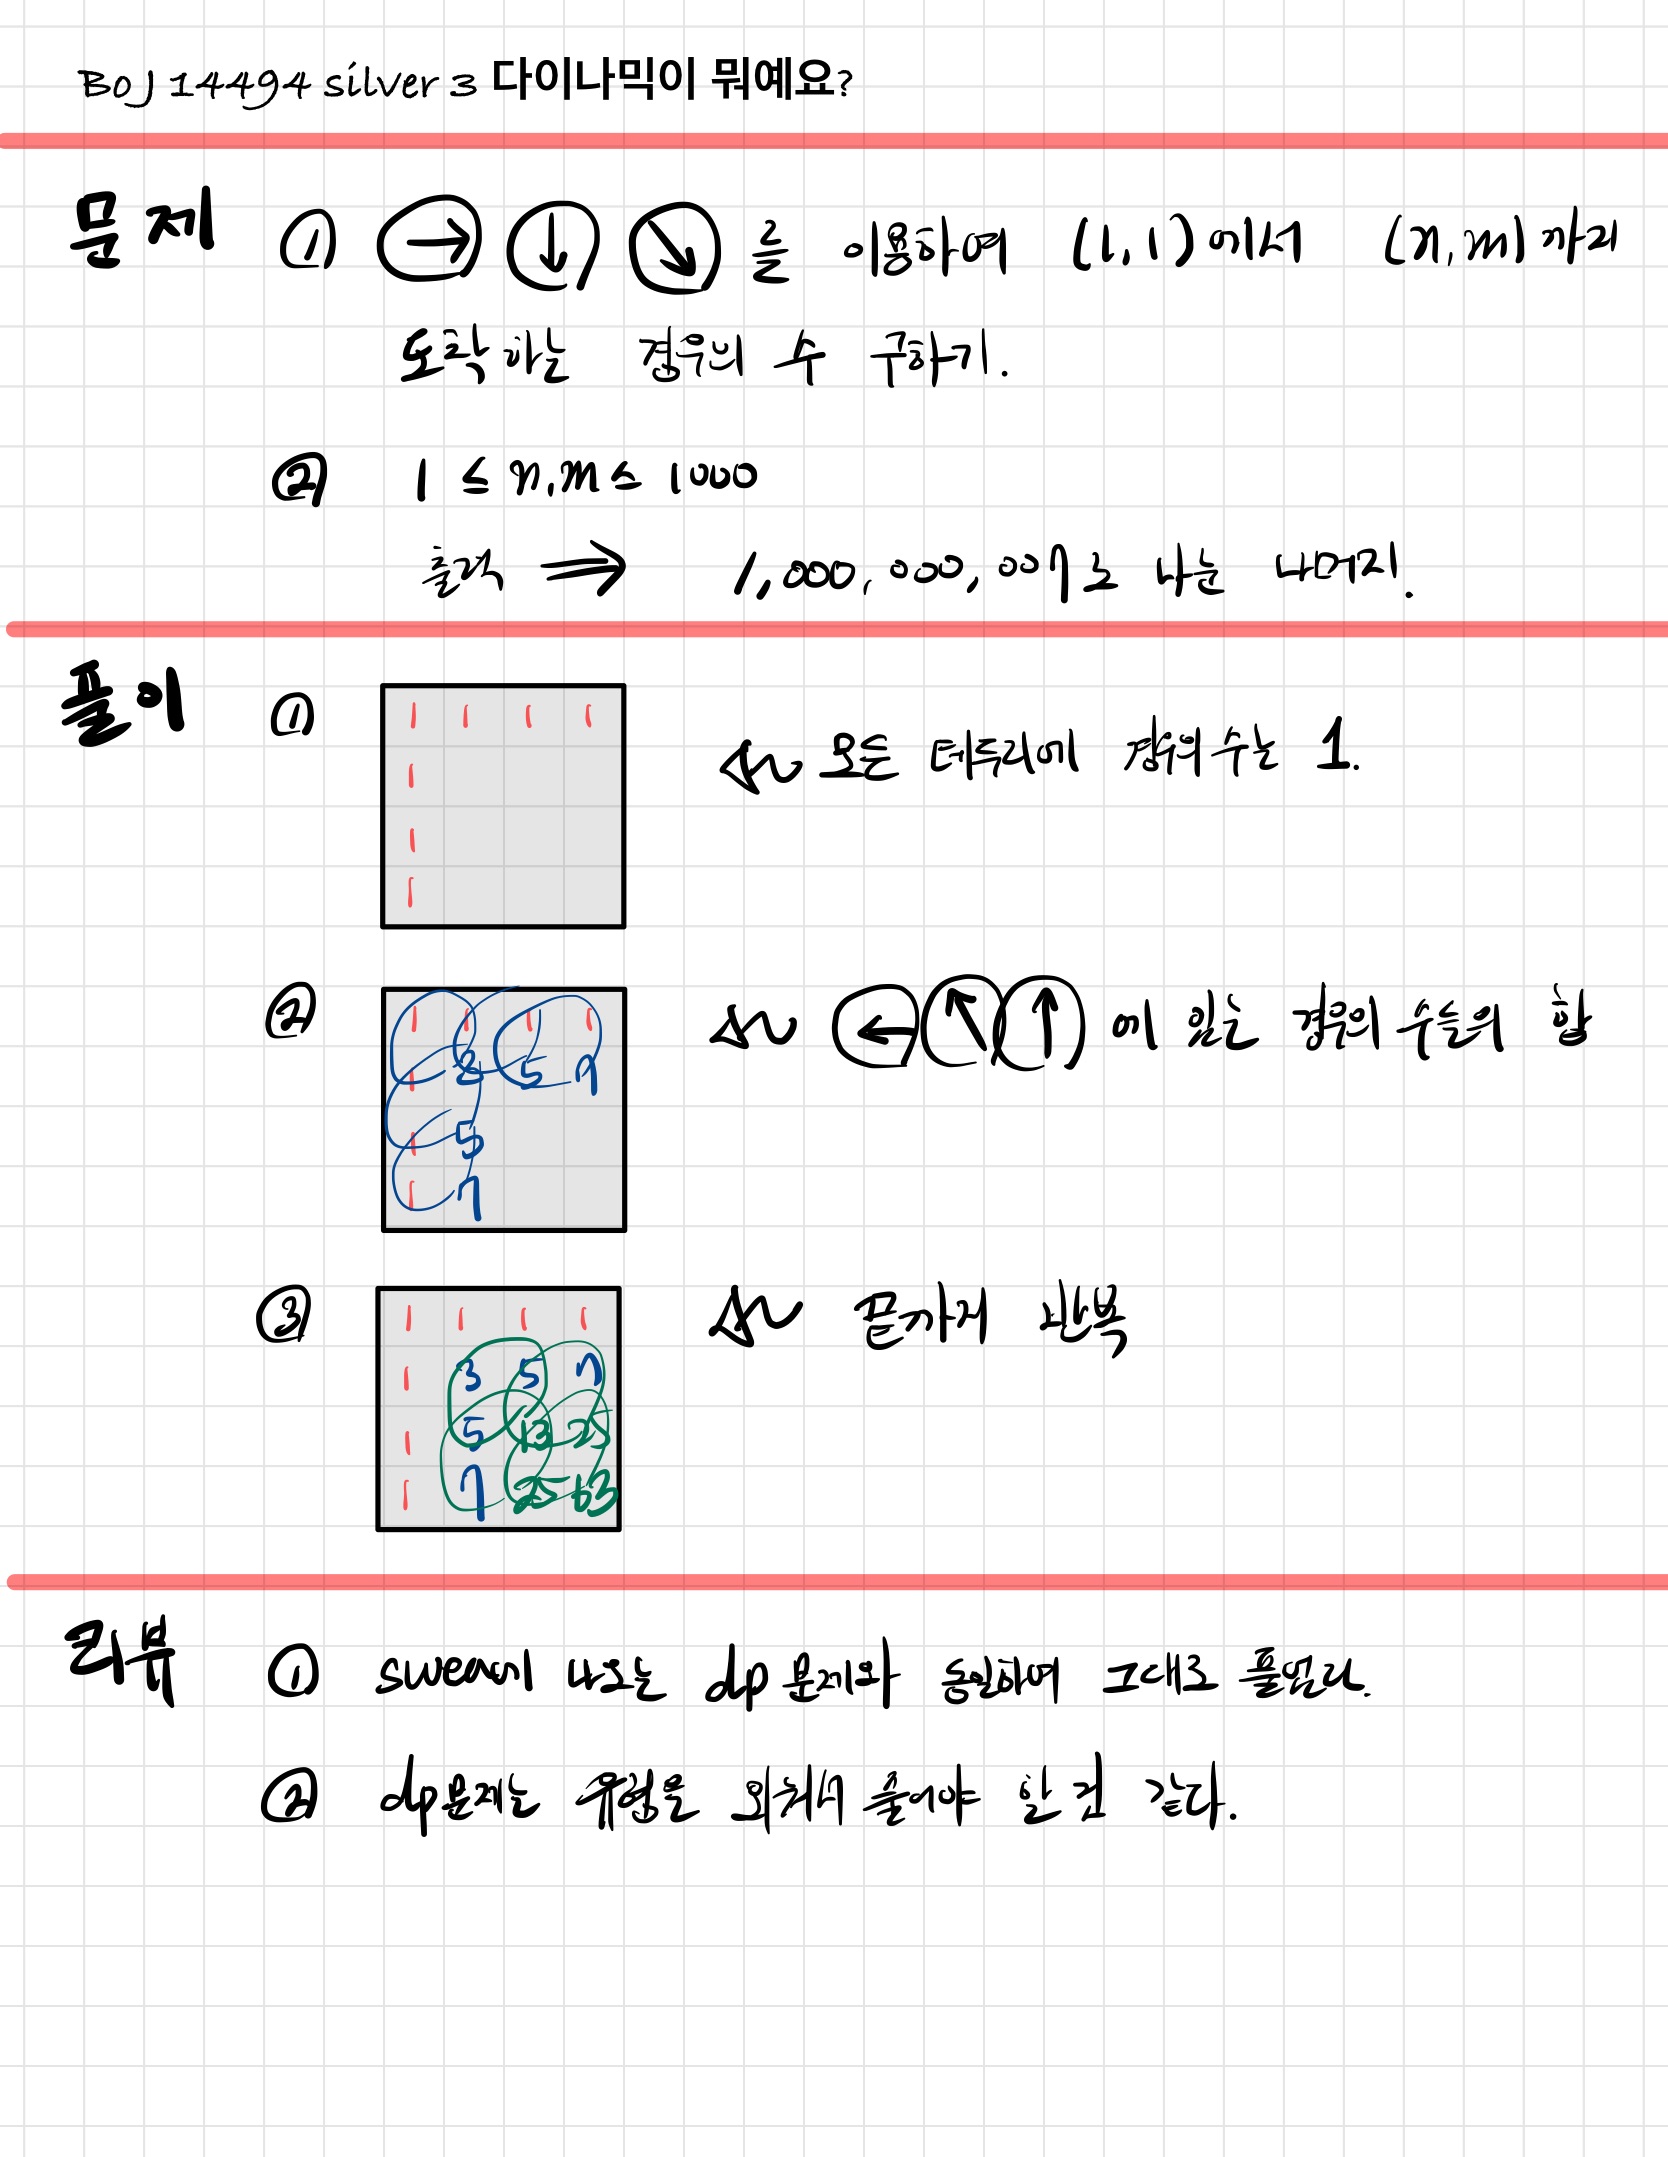 BOJ 14494 silver 3 다이나믹이 뭐예요?
문제 ① → ↓ ↘ 를 이용하여 (1,1)에서 (n,m)까지
도착하는 경우의 수 구하기.
② 1 ≤ n,m ≤ 1000
출력 ⇒ 1,000,000,007로 나눈 나머지.
풀이 ① 모든 테두리에 경우의 수는 1.
1 1 1 1
1
1
1
② ← ↖ ↑ 에 있는 경우의 수들의 합
1 1 1 1
1 3 5 7
1 5
1 7
③ 끝까지 반복
1 1 1 1
1 3 5 7
1 5 13 25
1 7 25 63
리뷰 ① swea에 나오는 dp 문제와 동일하여 그대로 풀었다.
② dp문제는 유형을 외워서 풀어야 할 것 같다.